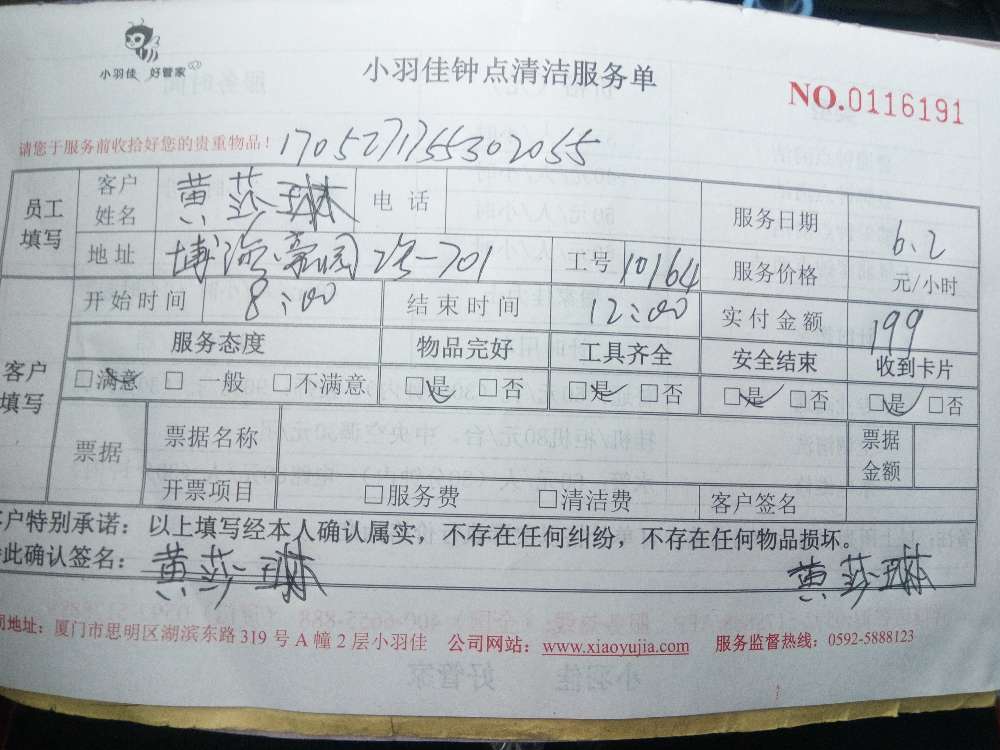 小羽佳 好管家
小羽佳钟点清洁服务单
NO.0116191
请您于服务前收拾好您的贵重物品！ 170527175530 2055
员工填写 客户姓名 黄莎琳 电话 服务日期 6.2
地址 博海豪园 701 工号 10164 服务价格 元/小时
客户填写 开始时间 8:00 结束时间 12:00 实付金额 199
服务态度 物品完好 工具齐全 安全结束 收到卡片
□满意 □一般 □不满意 □是 □否 □是 □否 □是 □否 □是 □否
票据 票据名称 票据金额
开票项目 □服务费 □清洁费 客户签名
客户特别承诺：以上填写经本人确认属实，不存在任何纠纷，不存在任何物品损坏。
此确认签名： 黄莎琳 黄莎琳
司地址：厦门市思明区湖滨东路 319 号 A 幢 2 层小羽佳 公司网站：www.xiaoyujia.com 服务监督热线：0592-5888123